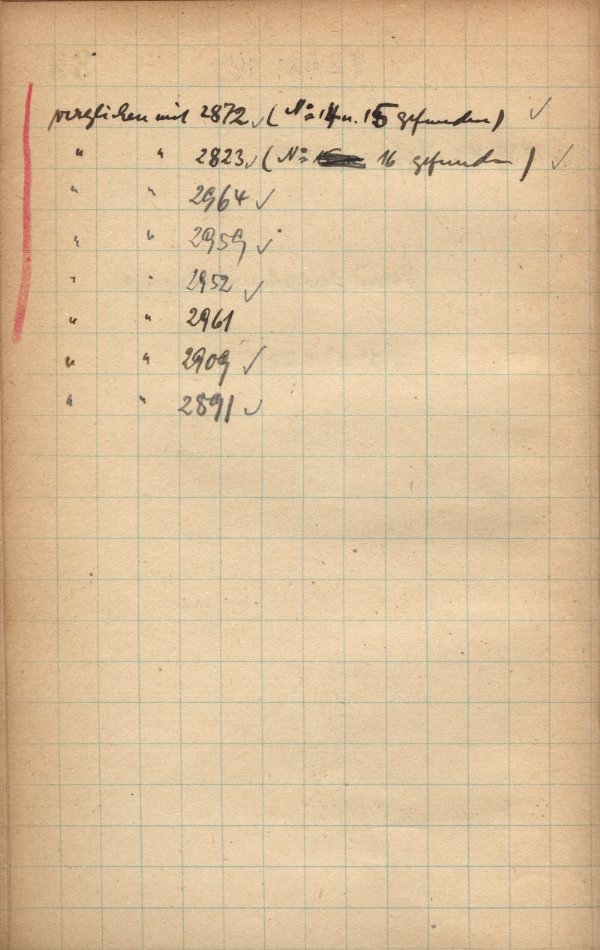 verglichen mit 2872 ✓ (No 14 u. 15 gefunden) ✓
" " 2823 ✓ (No 16 gefunden) ✓
" " 2964 ✓
" " 2959 ✓
" " 2952 ✓
" " 2961
" " 2909 ✓
" " 2891 ✓